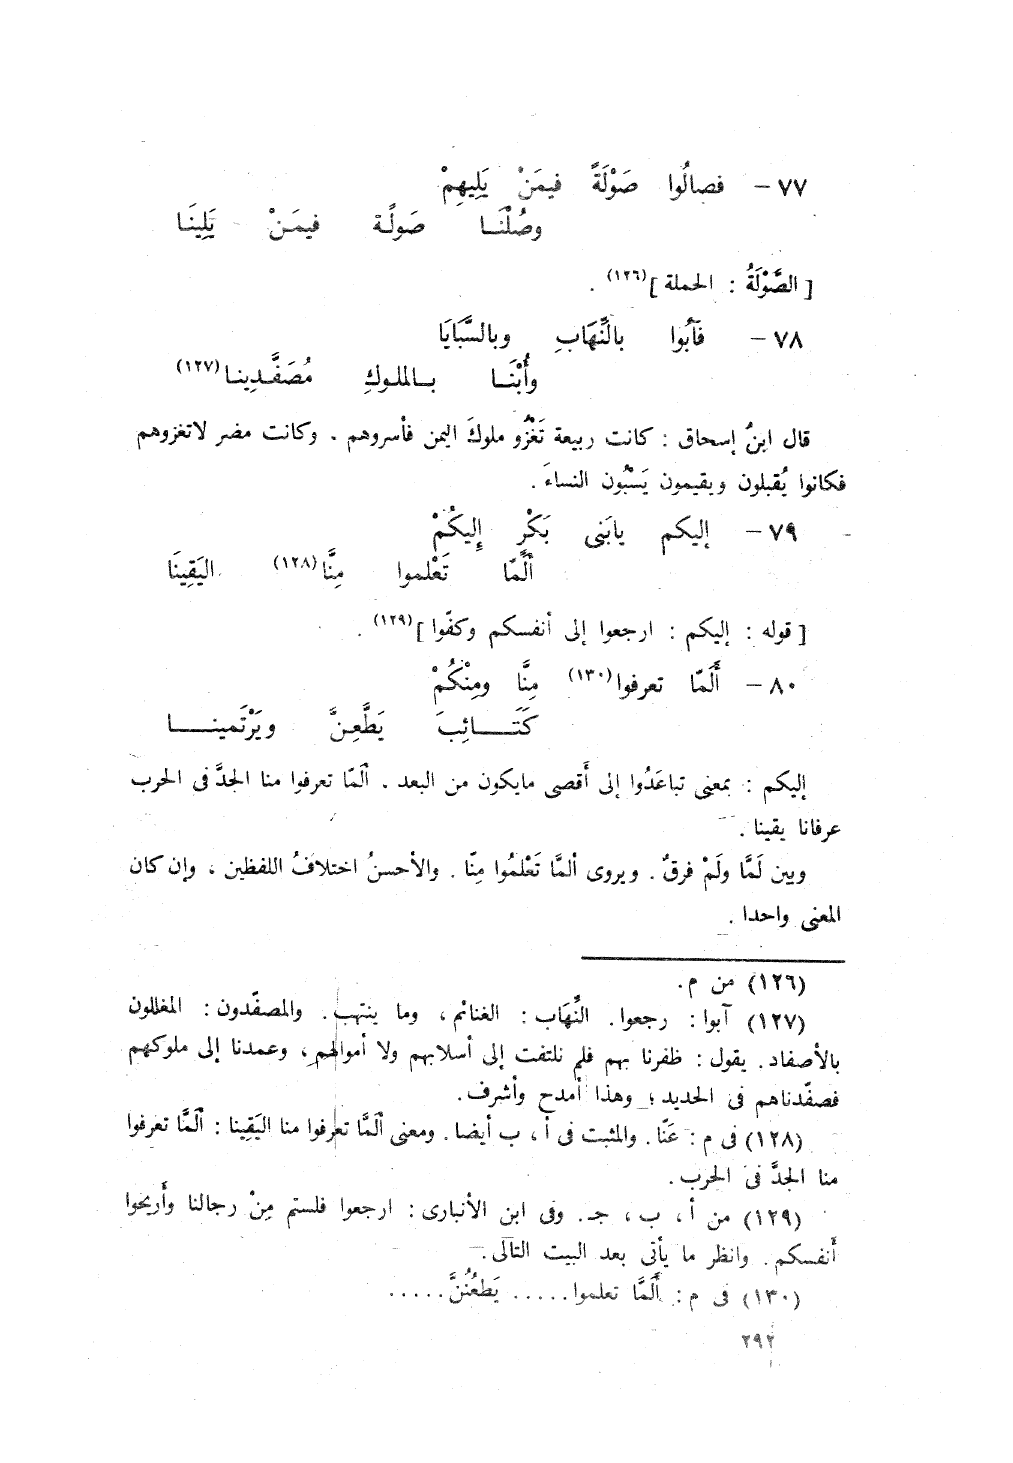 ٧٧ – فصالُوا صَوْلَةً فيمَنْ يَلِيهِمْ
وصُلْنَــا صَولًـة فيمَـنْ يَلِينَـا
[ الصَّوْلَةُ : الحملة ](١٢٦) .
٧٨ – فَآبُوا بالنِّهَابِ وبالسَّبَايَا
وأُبْنَــا بــالملـوكِ مُصَفَّـدِينـا(١٢٧)
قال ابنُ إسحاق : كانت ربيعة تَغْزُو ملوكَ اليمن فأسروهم . وكانت مضر لاتغزوهم
فكانوا يُقبلون ويقيمون يَسْبُون النساءَ .
٧٩ – إليكم يابَنى بَكْرٍ إِليكُمْ
ألَمّا تَعْلموا مِنَّا(١٢٨) اليَقِينَا
[ قوله : إليكم : ارجعوا إلى أنفسكم وكفّوا ](١٢٩) .
٨٠ – أَلَمّا تعرفوا(١٣٠) مِنَّا ومِنْكُمْ
كَتَـــــائِبَ يَطَّعِـنَّ ويَرْتَمينــــــا
إليكم : بمعنى تباعَدُوا إلى أَقصى مايكون من البعد . ألَمّا تعرفوا منا الجدَّ فى الحرب
عرفانا يقينا .
وبين لَمَّا ولَمْ فرقٌ . ويروى ألمَّا تَعْلمُوا مِنّا . والأحسنُ اختلافُ اللفظين ، وإن كان
المعنى واحدا .
(١٢٦) من م.
(١٢٧) آبوا: رجعوا. النِّهَاب: الغنائم، وما ينتهب. والمصفّدون: المغللون
بالأصفاد. يقول: ظفرنا بهم فلم نلتفت إلى أسلابهم ولا أموالهم، وعمدنا إلى ملوكهم
فصفّدناهم فى الحديد؛ وهذا أمدح وأشرف.
(١٢٨) فى م: عَنّا. والمثبت فى أ، ب أيضا. ومعنى ألَمَّا تعرفوا منا اليَقِينا: ألَمَّا تعرفوا
منا الجدَّ فى الحرب.
(١٢٩) من أ، ب، جـ. وفى ابن الأنبارى: ارجعوا فلستم مِنْ رجالنا وأَريحوا
أَنفسكم. وانظر ما يأتى بعد البيت التالى.
(١٣٠) فى م: أَلَمَّا تعلموا..... يَطعُنُنَّ.....
٢٩٢